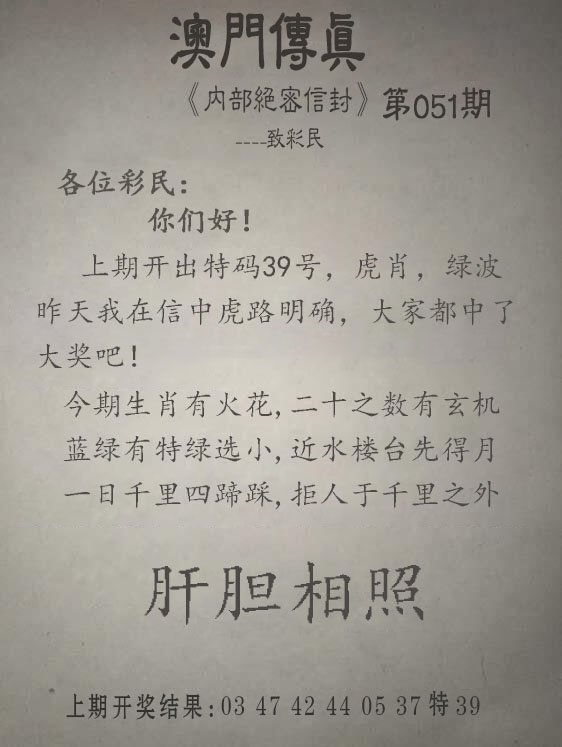 澳門傳真
《内部絕密信封》第051期
----致彩民
各位彩民：
你们好！
上期开出特码39号，虎肖，绿波
昨天我在信中虎路明确，大家都中了
大奖吧！
今期生肖有火花,二十之数有玄机
蓝绿有特绿选小,近水楼台先得月
一日千里四蹄踩,拒人于千里之外
肝胆相照
上期开奖结果:03 47 42 44 05 37特39